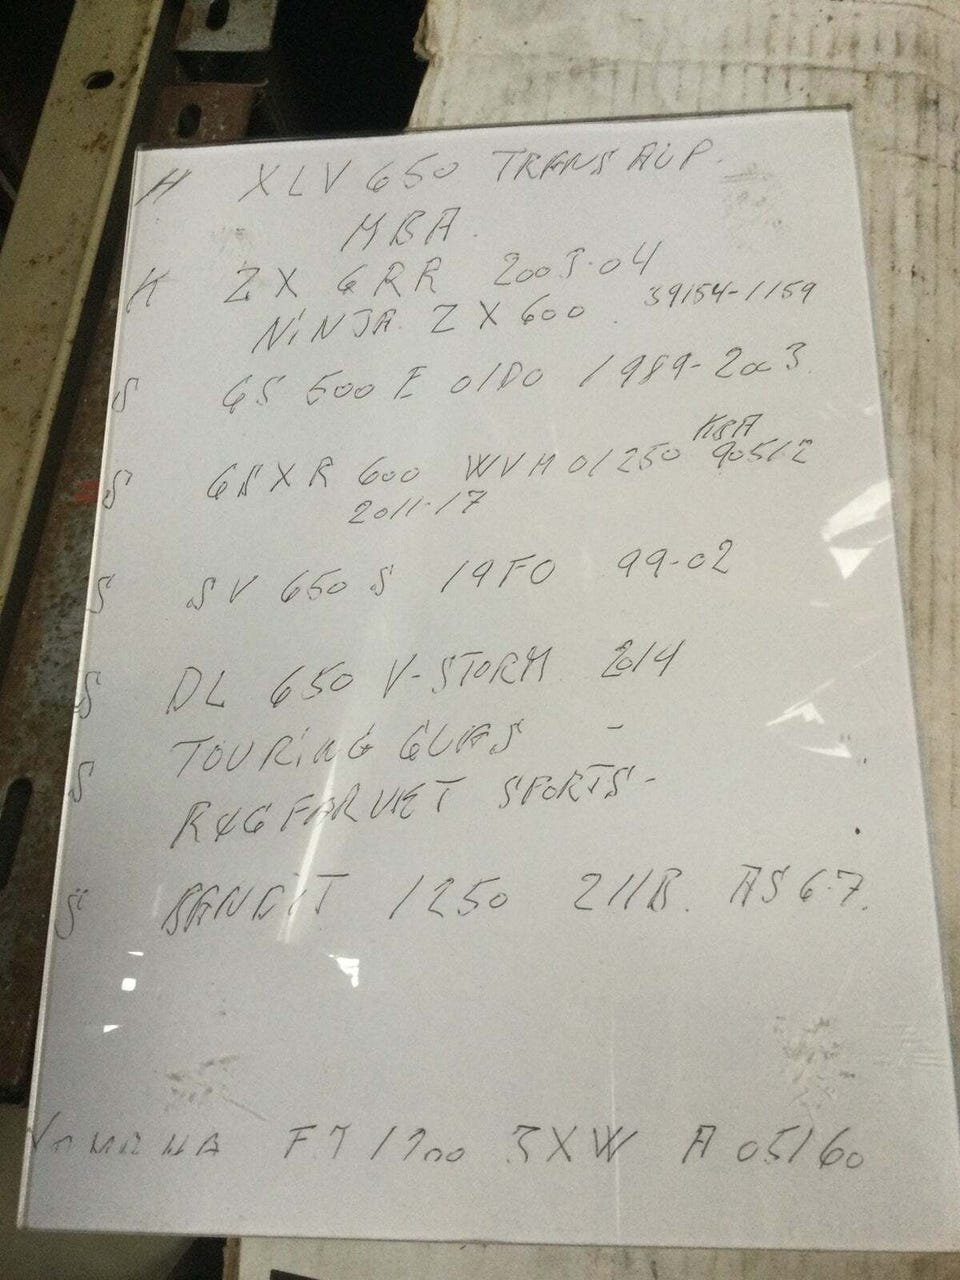 H XLV 650 TRANSALP.
MBA.
K ZX 6RR 2003-04
NiNJA ZX600. 39154-1159
S GS 500 E 01D0 1989-2003.
KBA
S GSXR 600 WVH01250 90512
2011-17
S SV 650 S 19F0 99-02
S DL 650 V-STORM 2014
TOURiNG -
S R&G SPORTS-
S BANDIT 1250 211B. AS 6-7.
YAMAHA FJ 1200 3XW A 05160